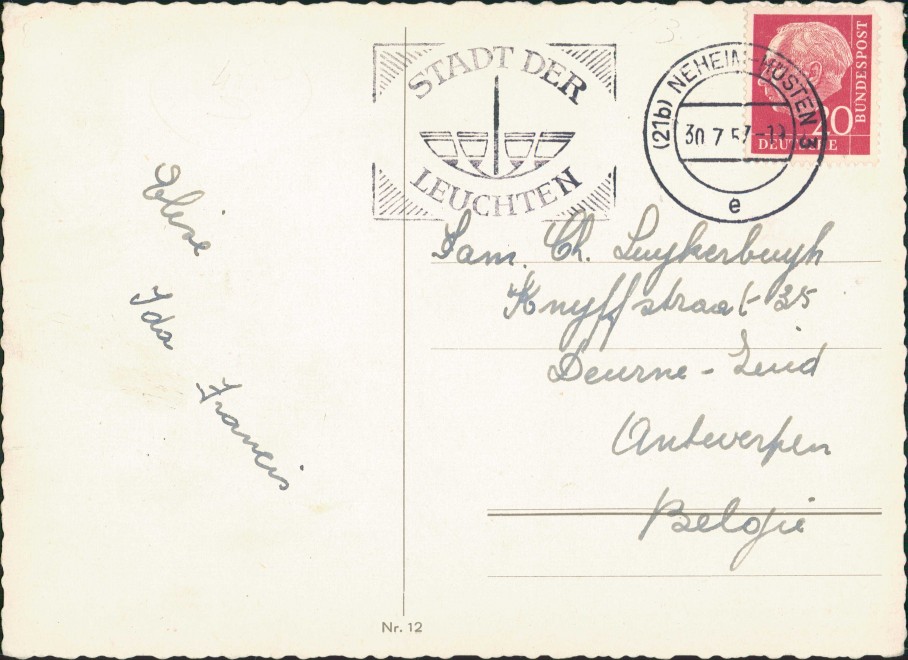 STADT DER
LEUCHTEN
(21b) NEHEIM-HÜSTEN 3
30.7.57-18
e
BUNDESPOST
20
DEUTSCHE
Elise
Ida
Francis
Fam. Ch. Luykerbuyk
Knyffstraat 35
Deurne - Zuid
Antwerpen
Belgie
Nr. 12